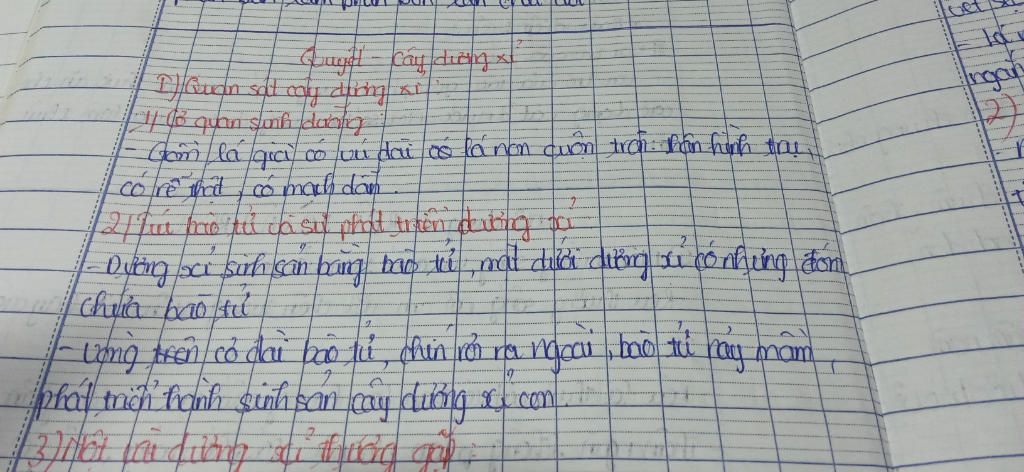 Quyết - Cây dương xỉ
I) Quan sát cây dương xỉ
1) Cơ quan sinh dưỡng:
- Gồm lá già có cuống dài có lá non cuộn tròn. thân hình trụ,
có rễ thật, có mạch dẫn.
2) Túi bào tử và sự phát triển dương xỉ
- Dương xỉ sinh sản bằng bào tử, mặt dưới dương xỉ có những đốm
chứa bào tử
- Vòng trên có dài bào tử, chín rơi ra ngoài, bào tử nảy mầm,
phát triển thành sinh sản cây dương xỉ con.
3) Một loài dương xỉ thường gặp:
2)